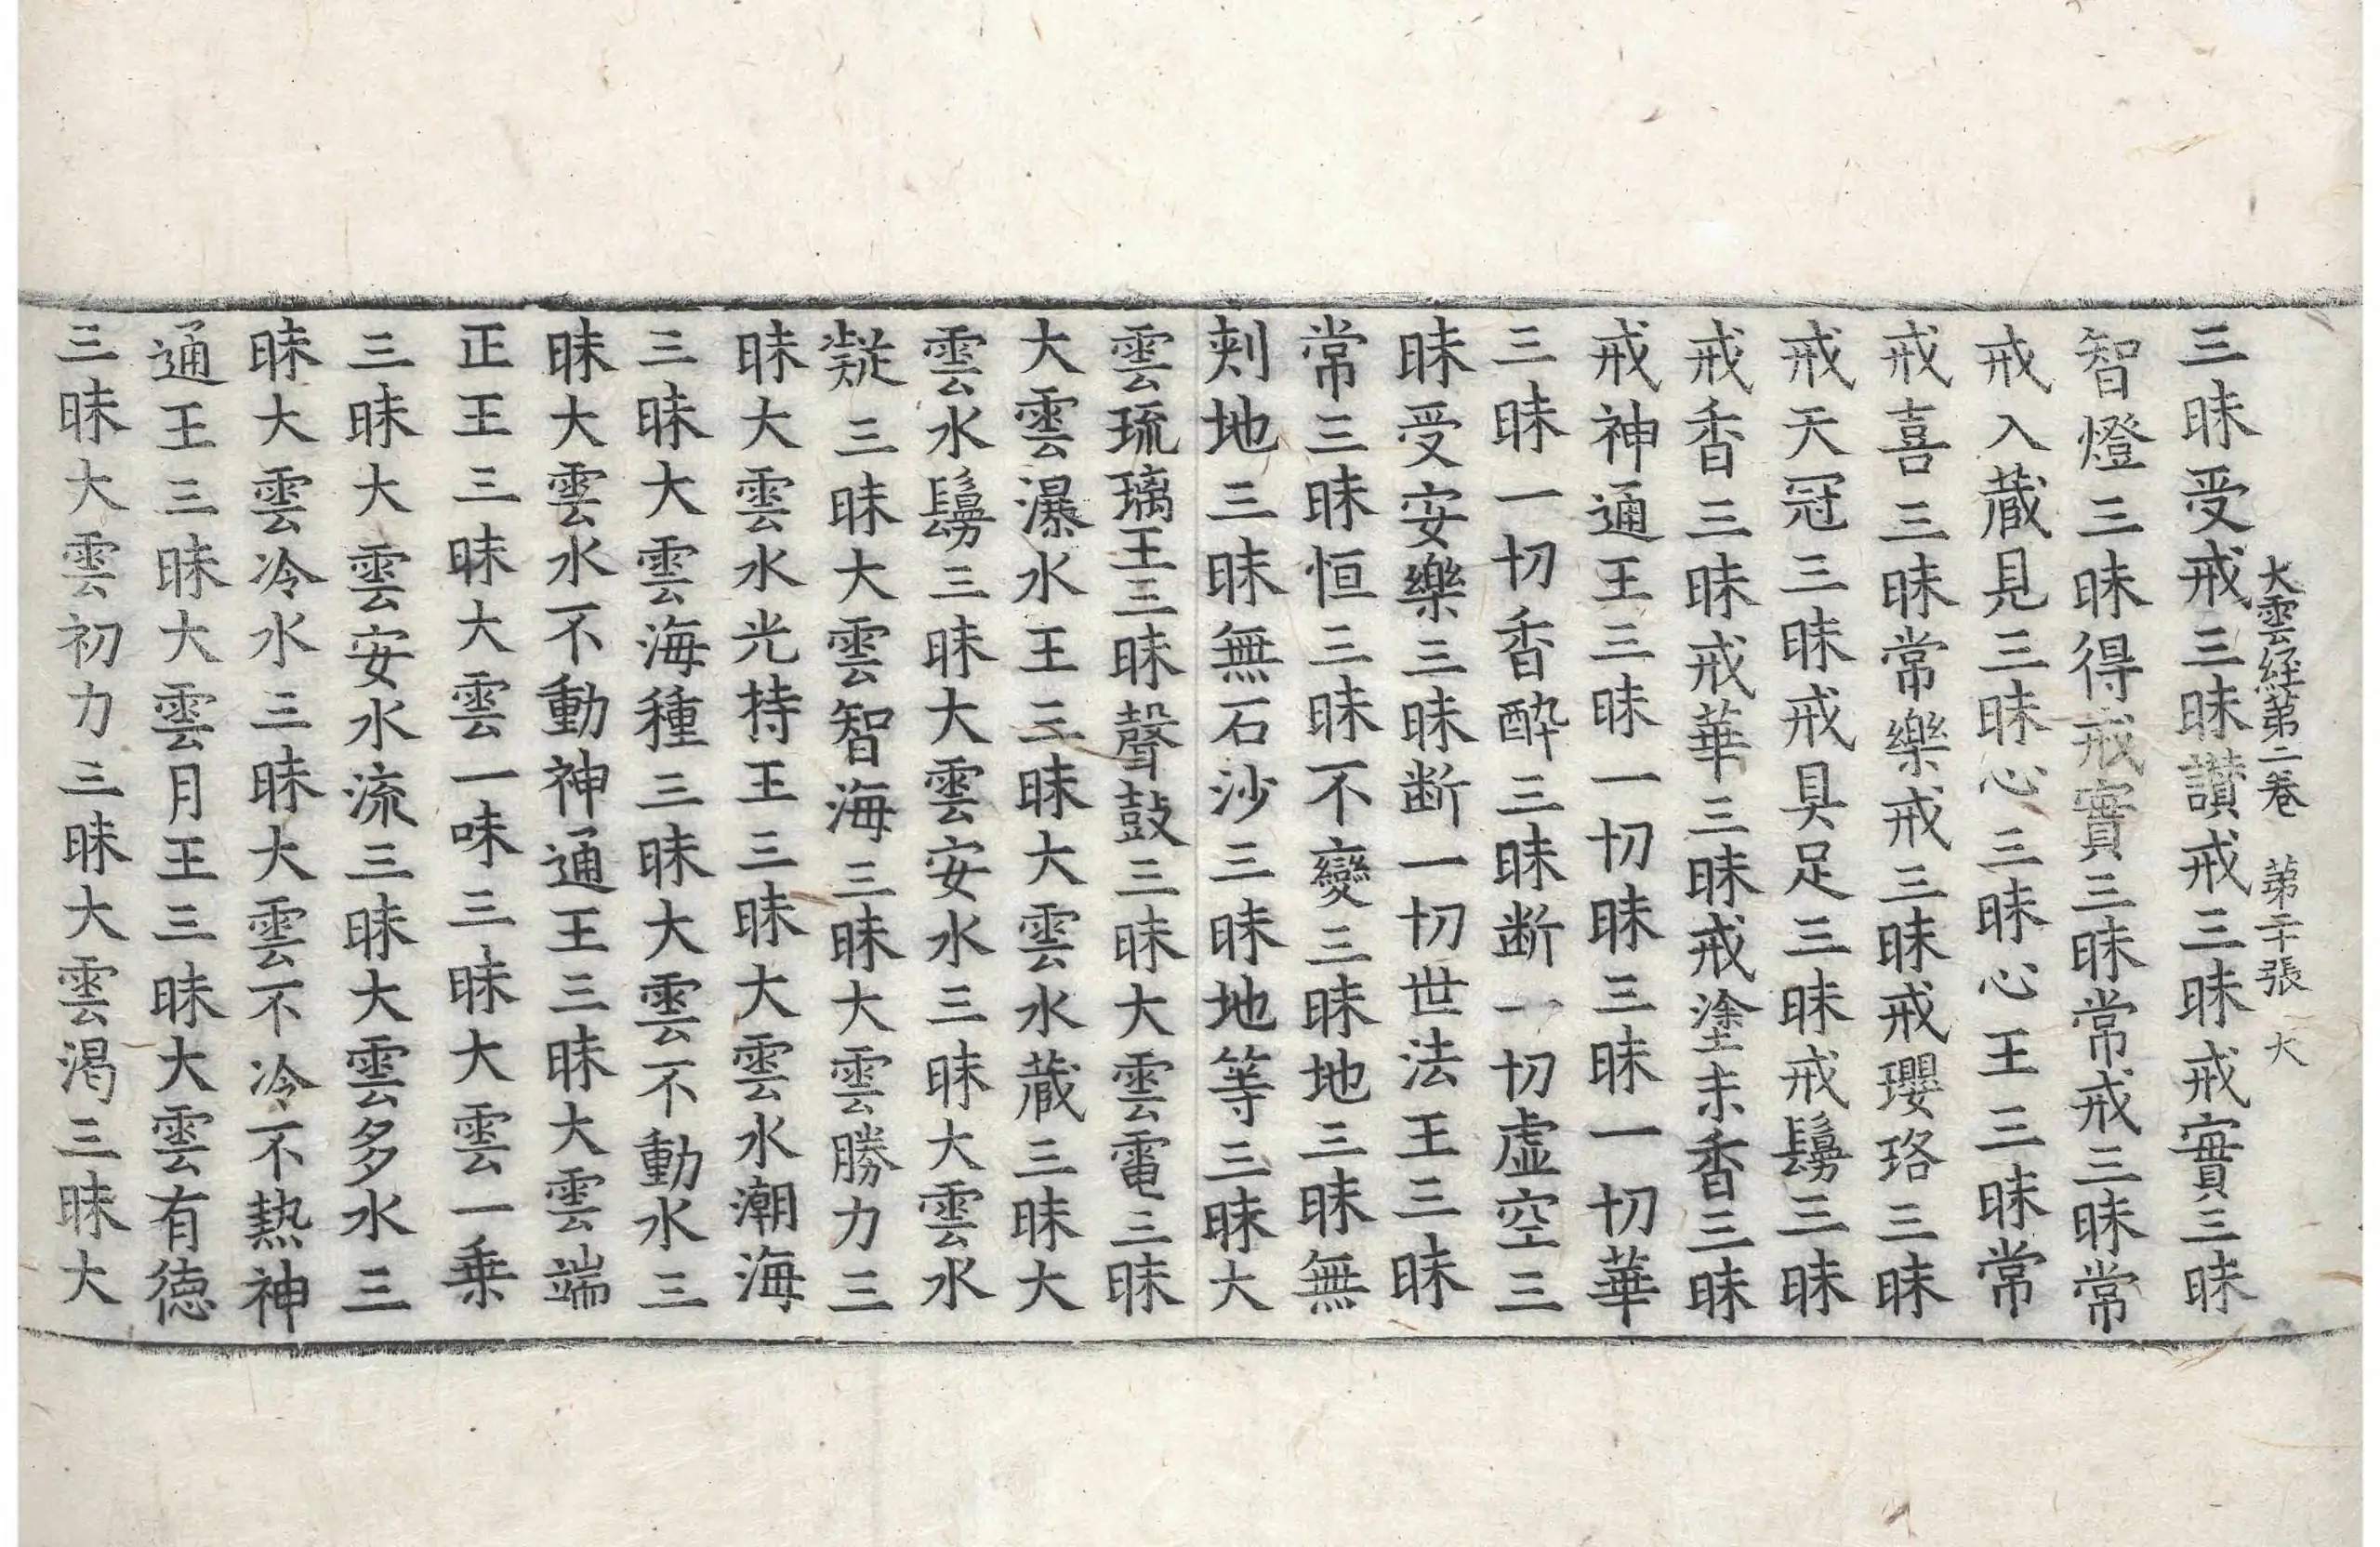 大雲経第二卷 第二十張 大
三昧受戒三昧讃戒三昧戒實三昧
智燈三昧得戒實三昧常戒三昧常
戒入蔵見三昧心三昧心王三昧常
戒喜三昧常樂戒三昧戒瓔珞三昧
戒天冠三昧戒具足三昧戒鬘三昧
戒香三昧戒華三昧戒塗末香三昧
戒神通王三昧一切昧三昧一切華
三昧一切香酔三昧断一切虚空三
昧受安樂三昧断一切世法王三昧
常三昧恒三昧不變三昧地三昧無
刾地三昧無石沙三昧地等三昧大
雲琉璃王三昧聲鼓三昧大雲電三昧
大雲瀑水王三昧大雲水蔵三昧大
雲水鬘三昧大雲安水三昧大雲水
㲉三昧大雲智海三昧大雲勝力三
昧大雲水光持王三昧大雲水潮海
三昧大雲海種三昧大雲不動水三
昧大雲水不動神通王三昧大雲端
正王三昧大雲一味三昧大雲一乗
三昧大雲安水流三昧大雲多水三
昧大雲冷水三昧大雲不冷不熱神
通王三昧大雲月王三昧大雲有德
三昧大雲初力三昧大雲渇三昧大